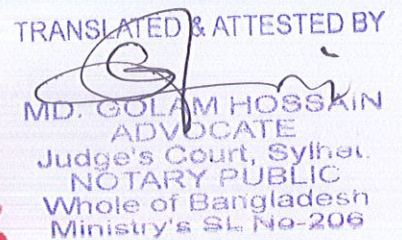 TRANSLATED & ATTESTED BY
MD. GOLAM HOSSAIN
ADVOCATE
Judge's Court, Sylhet.
NOTARY PUBLIC
Whole of Bangladesh
Ministry's SL No-206